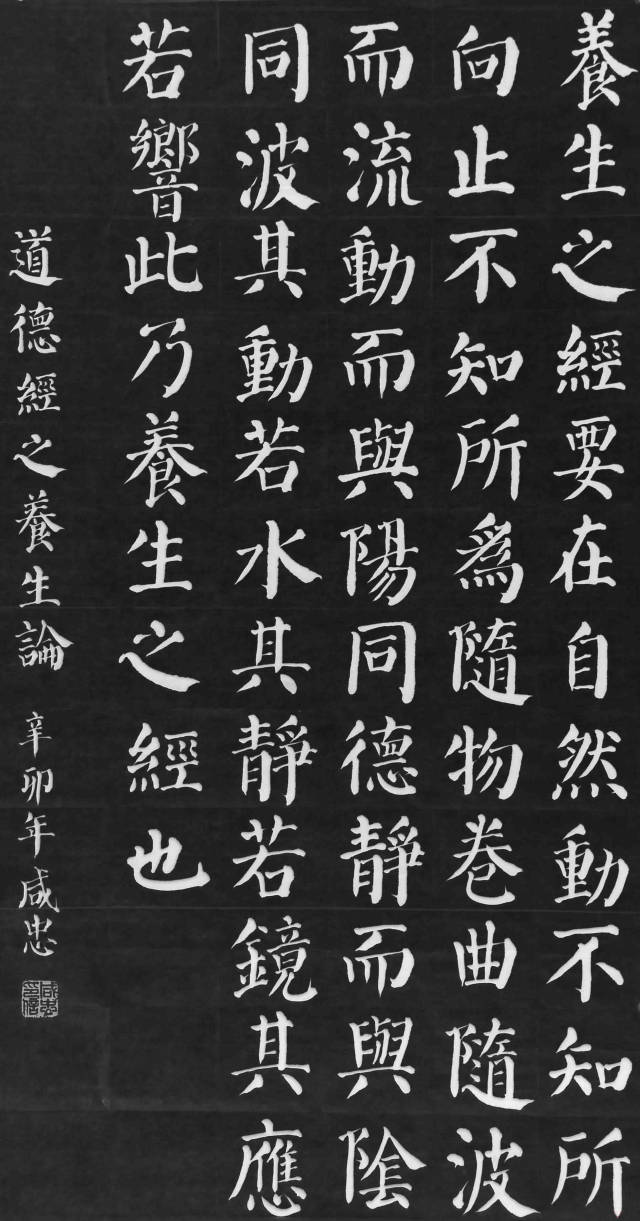 養生之經要在自然動不知所
向止不知所為隨物卷曲隨波
而流動而與陽同德靜而與陰
同波其動若水其靜若鏡其應
若響此乃養生之經也
道德經之養生論 辛卯年咸忠